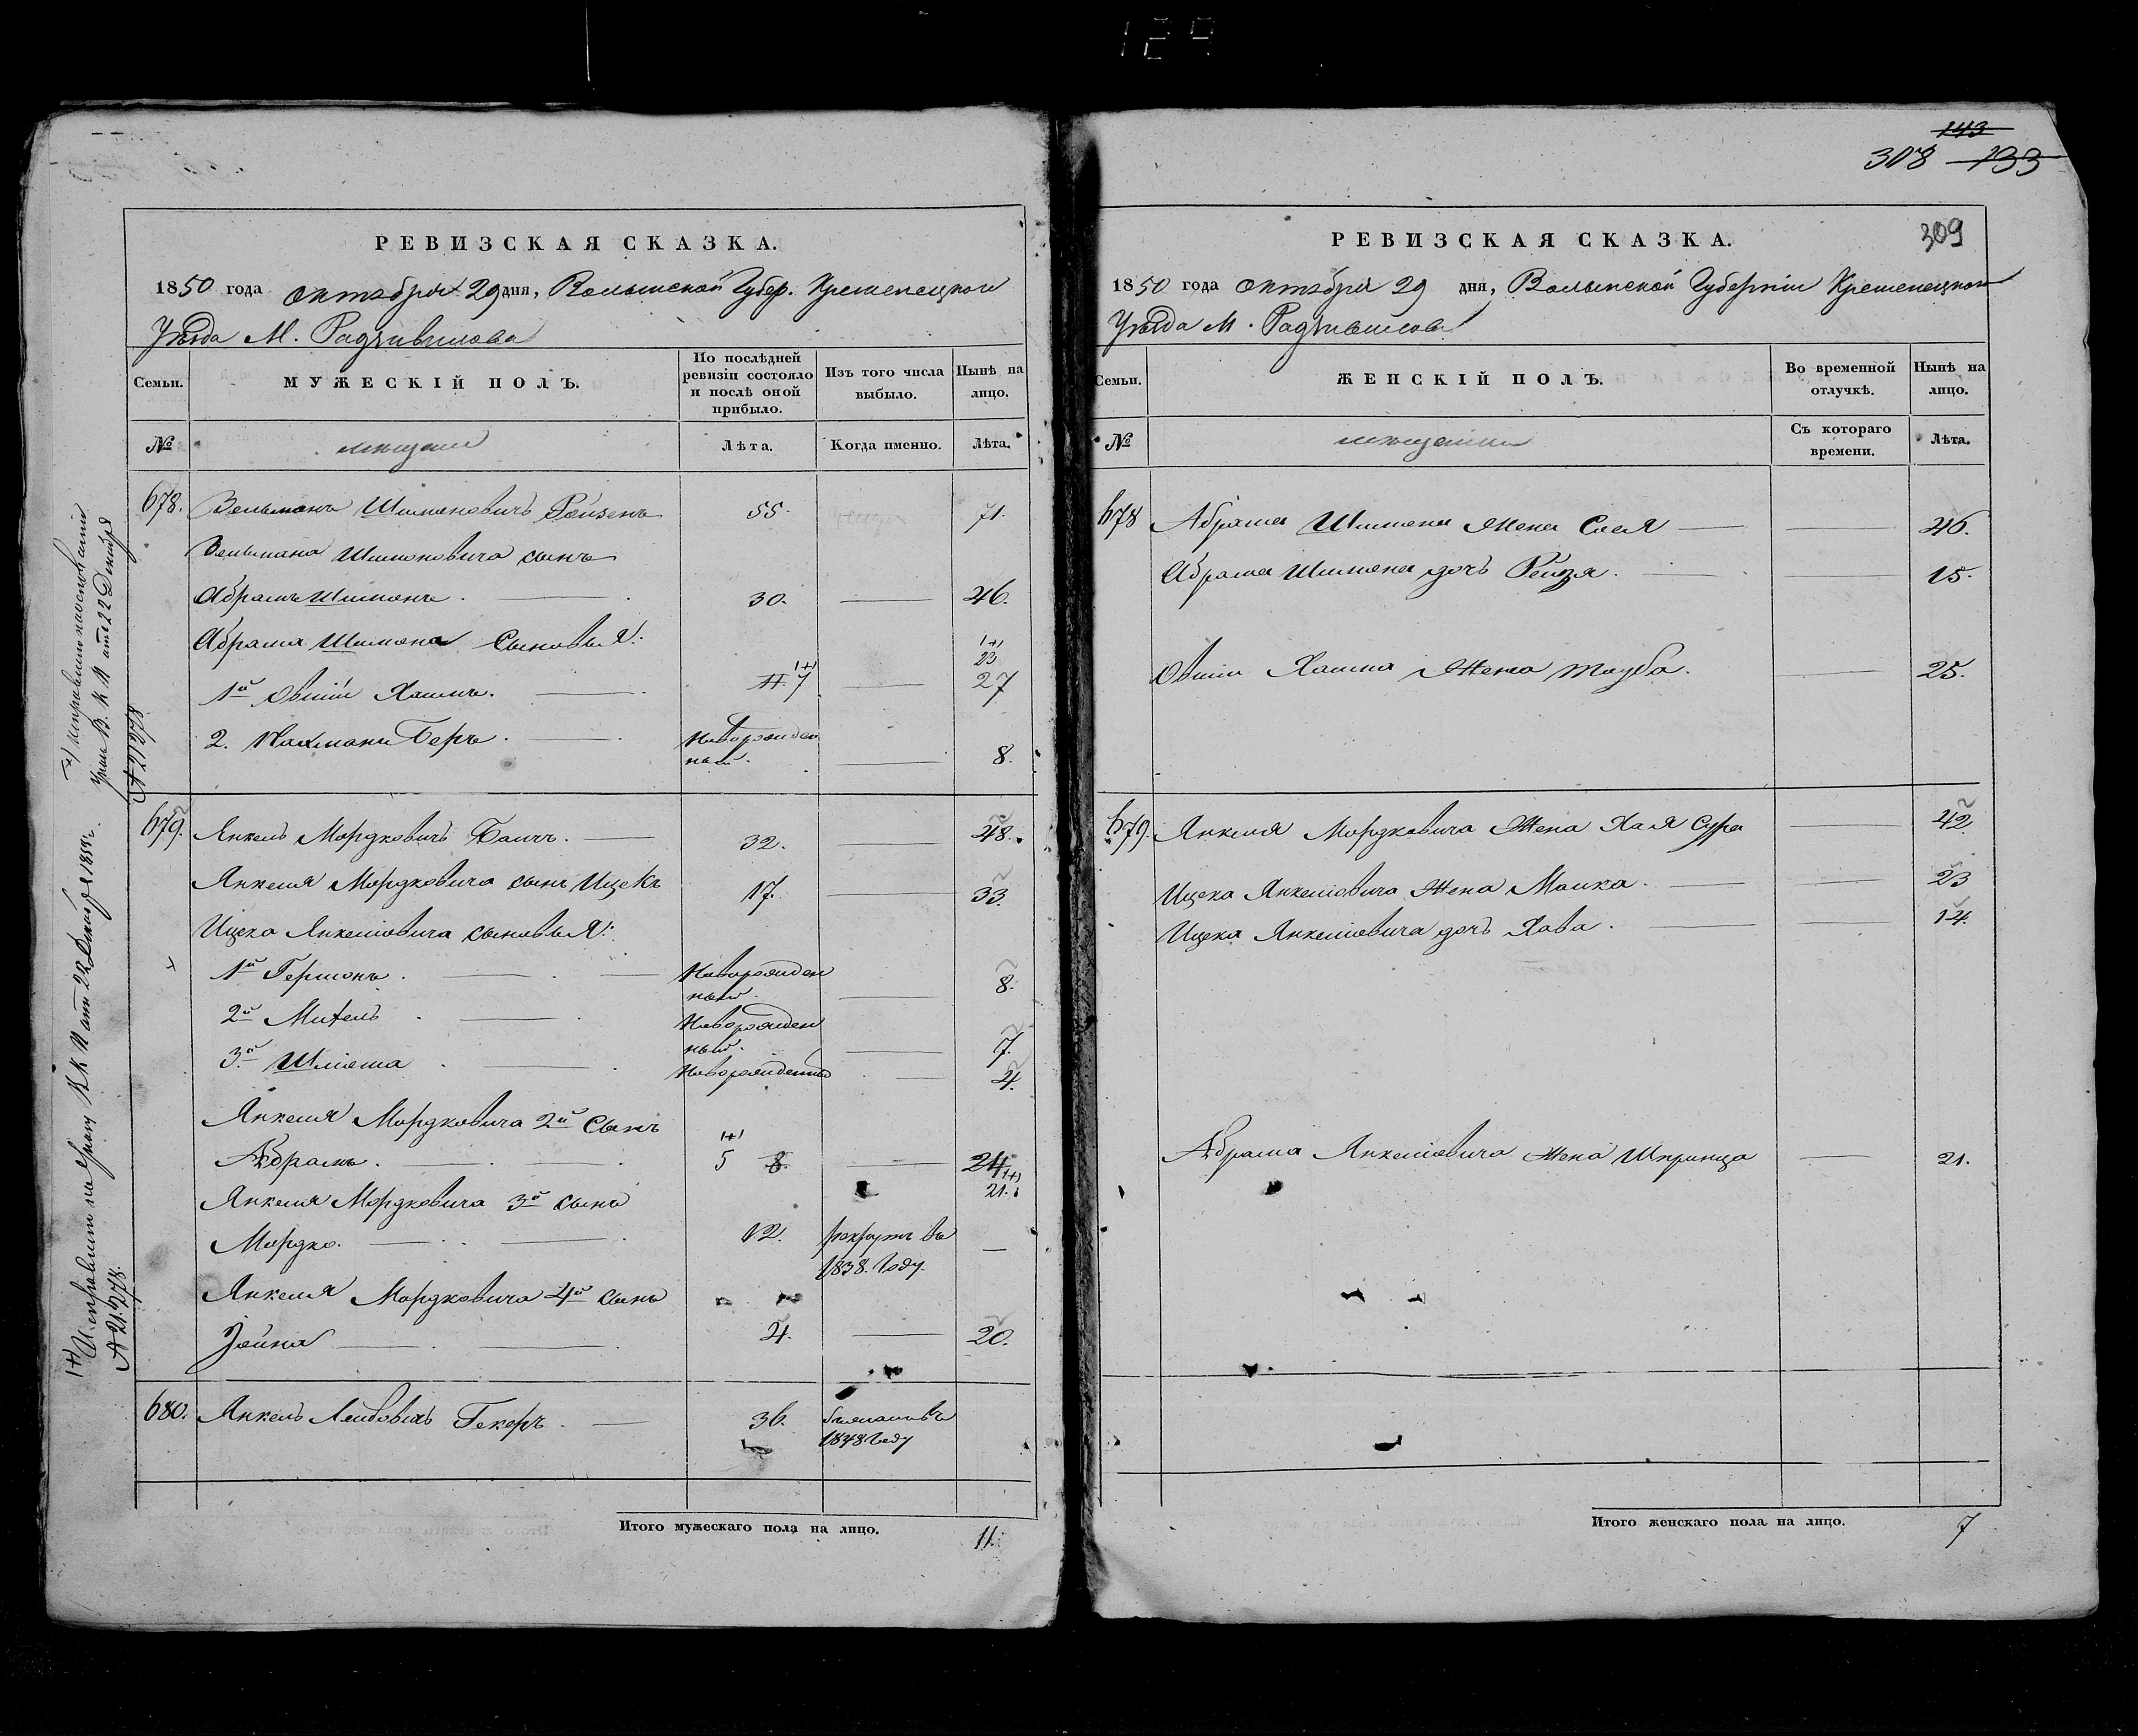 129
РЕВИЗСКАЯ СКАЗКА.
1850 года октября 29 дня, Волынской Губер. Кременецкого
Уѣзда М. Радзивилова
Семьи.
МУЖЕСКІЙ ПОЛЪ.
По послѣдней ревизіи состояло и послѣ оной прибыло.
Изъ того числа выбыло.
Нынѣ на лицо.
№
мещане
Лѣта.
Когда именно.
Лѣта.
678. Вельманъ Шимоновичъ Ройзенъ 55. 71.
Вельмана Шимоновича сынъ
Абрамъ Шимонъ. 30. 46.
Абрама Шимона сыновья:
1й Овшій Хаимъ. 11. 7 1+1 23 27
2. Нахманъ Беръ. Новорожден
ный. 8.
679. Янкель Мордковичъ Баичъ. 32. 48.
Янкеля Мордковича сынъ Ицекъ 17. 33.
Ицека Янкеліовича сыновья:
1й Гершонъ. Новорожден
ный. 8.
2й Михель. Новорожден
ный. 7.
3й Шліома. Новорожденный 4.
Янкеля Мордковича 2й сынъ
Абрамъ. 5 8. 24 21.
Янкеля Мордковича 3й сынъ
Мордко. 12. рекрутъ въ
1838. году.
Янкеля Мордковича 4й сынъ
Зейна 4. 20.
680. Янкель Лейбовичъ Гекеръ. 36.
1848 году
Итого мужескаго пола на лицо. 11.
Исправлен по Указу В. К. П. отъ 22 Декабря
№ 21278
143
308 133
309
РЕВИЗСКАЯ СКАЗКА.
1850 года октября 29 дня, Волынской Губерніи Кременецкого
Уѣзда М. Радзивилова
Семьи.
ЖЕНСКІЙ ПОЛЪ.
Во временной отлучкѣ.
Нынѣ на лицо.
№
мещанки
Съ котораго времени.
Лѣта.
678 Абрама Шимона жена Слея 46.
Абрама Шимона дочь Рейзя. 15.
Овшія Хаима жена Тауба. 25.
679. Янкеля Мордковича жена Хая Сура 42.
Ицека Янкеліовича жена Малка. 23
Ицека Янкеліовича дочь Хава. 14.
Абрама Янкеліовича жена Шпринца 21.
Итого женскаго пола на лицо. 7